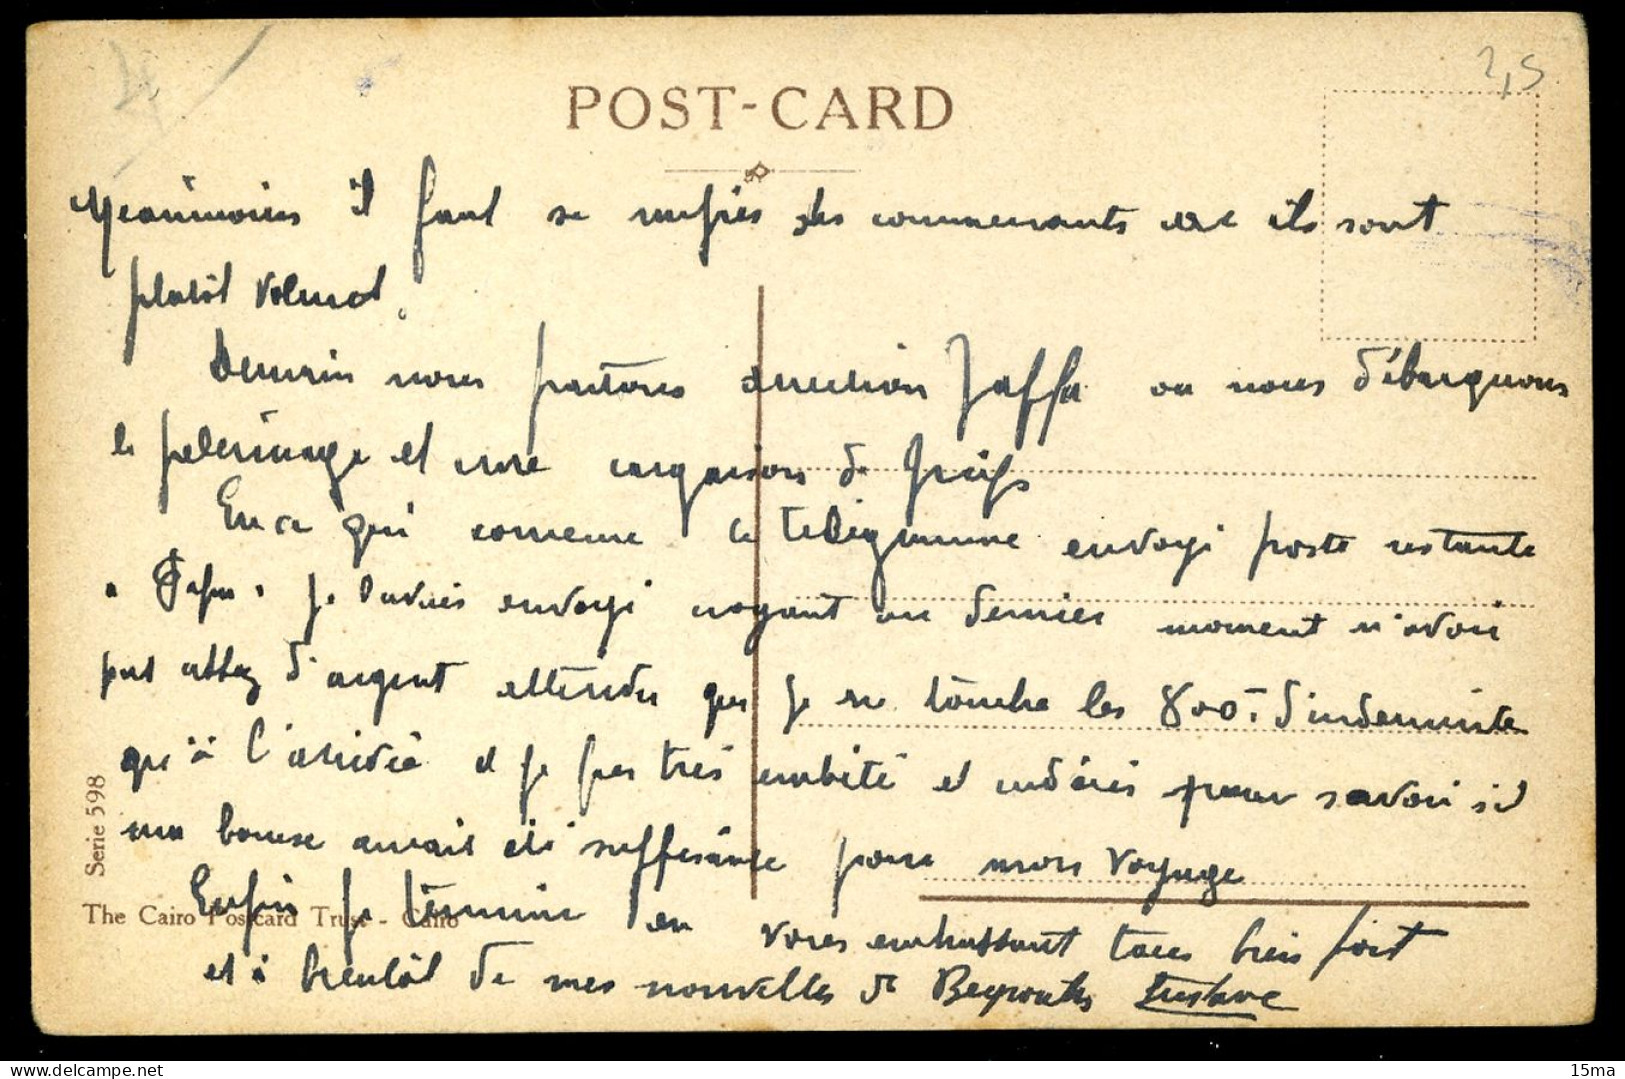 POST-CARD
2,5
Neanmoins il faut se mefier des commercants car ils sont
plutôt voleurs.
Demain nous partons direction Jaffa ou nous débarquons
le pelerinage et une cargaison de
En ce qui concerne le telegramme envoyé poste restante
" " je l'avais envoyé croyant au dernier moment n'avoir
pas assez d'argent attendu que je ne touche les 800 d'indemnite
qu'à l'arrivée et je fus très embêté et indécis pour savoir si
ma bourse aurait été suffisante pour mon voyage
Enfin je termine en vous embrassant tous bien fort
et à bientôt de mes nouvelles de Beyrouth Gustave
Serie 598
The Cairo Postcard Trust - Cairo
15ma